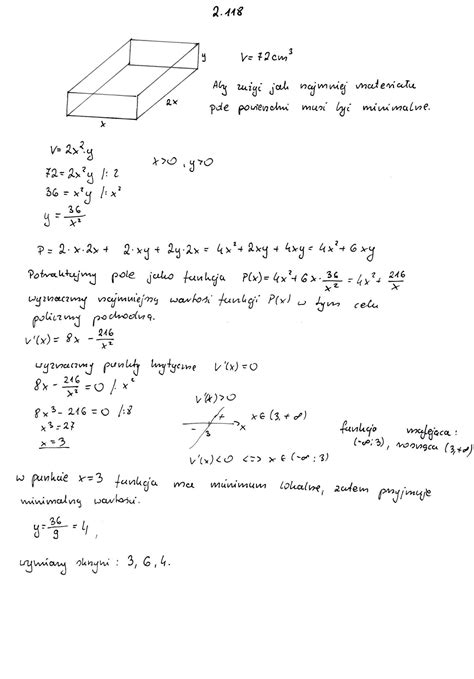 2.118
y
2x
x
V = 72 cm³
Aby zużyć jak najmniej materiału
pole powierzchni musi być minimalne.
V = 2x²·y
72 = 2x²y /:2
36 = x²y /:x²
y = 36/x²
x>0, y>0
P = 2·x·2x + 2·xy + 2y·2x = 4x² + 2xy + 4xy = 4x² + 6xy
Potraktujmy pole jako funkcja P(x) = 4x² + 6x·36/x² = 4x² + 216/x
wyznaczmy najmniejszą wartość funkcji P(x) w tym celu
policzmy pochodną.
V'(x) = 8x - 216/x²
wyznaczmy punkty krytyczne V'(x) = 0
8x - 216/x² = 0 /·x²
8x³ - 216 = 0 /:8
x³ = 27
x = 3
V'(x) > 0
+ x ∈ (3, +∞)
- 3 x
V'(x) < 0 <=> x ∈ (-∞; 3)
funkcja malejąca:
(-∞; 3), rosnąca (3, +∞)
w punkcie x = 3 funkcja ma minimum lokalne, zatem przyjmuje
minimalną wartość.
y = 36/9 = 4,
wymiary skrzyni: 3, 6, 4.